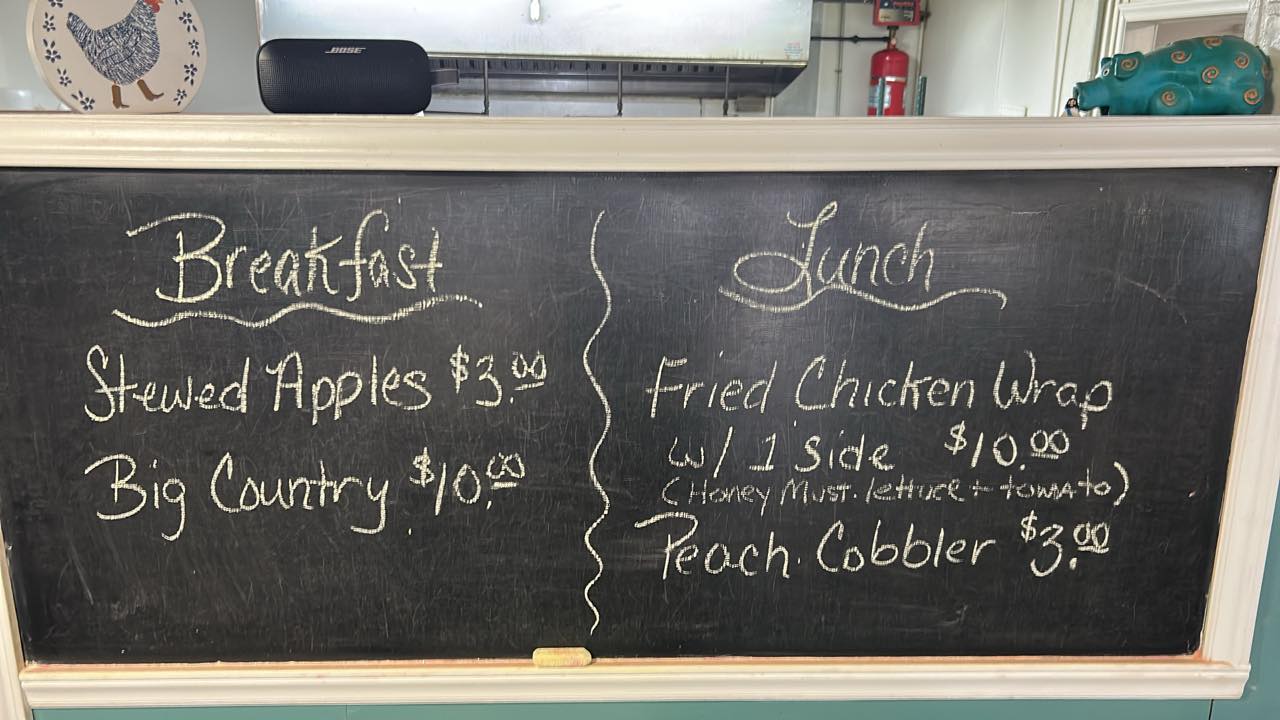 BOSE
Breakfast
Stewed Apples $3.00
Big Country $10.00
Lunch
Fried Chicken Wrap
w/ 1 side $10.00
(Honey Must. lettuce + tomato)
Peach Cobbler $3.00